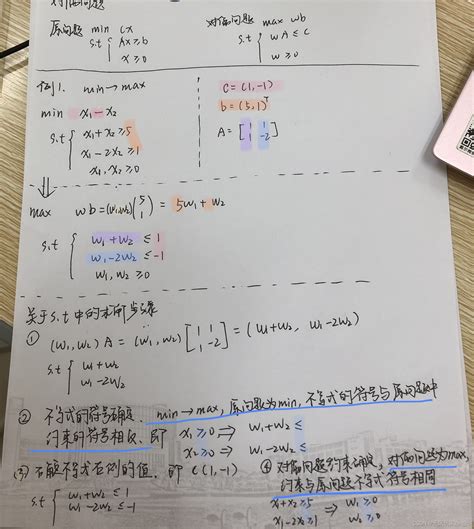 对偶问题
原问题 min cx
s.t { Ax ≥ b
x ≥ 0
对偶问题 max wb
s.t { wA ≤ c
w ≥ 0
例1. min → max
min x₁ - x₂
s.t { x₁ + x₂ ≥ 5
x₁ - 2x₂ ≥ 1
x₁, x₂ ≥ 0
c = (1, -1)
b = (5, 1)ᵀ
A = [1 1
1 -2]
max wb = (w₁, w₂) (5
1) = 5w₁ + w₂
s.t { w₁ + w₂ ≤ 1
w₁ - 2w₂ ≤ -1
w₁, w₂ ≥ 0
关于s.t中的求解步骤
① (w₁, w₂) A = (w₁, w₂) [1 1
1 -2] = (w₁ + w₂, w₁ - 2w₂)
s.t { w₁ + w₂
w₁ - 2w₂
② 不等式的符号确定. min → max, 原问题为min, 不等式的符号与原问题中
约束的符号相反, 即 x₁ ≥ 0 ⇒ w₁ + w₂ ≤
x₂ ≥ 0 ⇒ w₁ - 2w₂ ≤
③ 不等式右侧的值. 即 C(1, -1)
s.t { w₁ + w₂ ≤ 1
w₁ - 2w₂ ≤ -1
④ 对偶问题约束确定, 对偶问题为max,
约束与原问题不等式符号相同
x₁ + x₂ ≥ 5 ⇒ w₁ ≥ 0
x₁ - 2x₂ ≥ 1 ⇒ w₂ ≥ 0